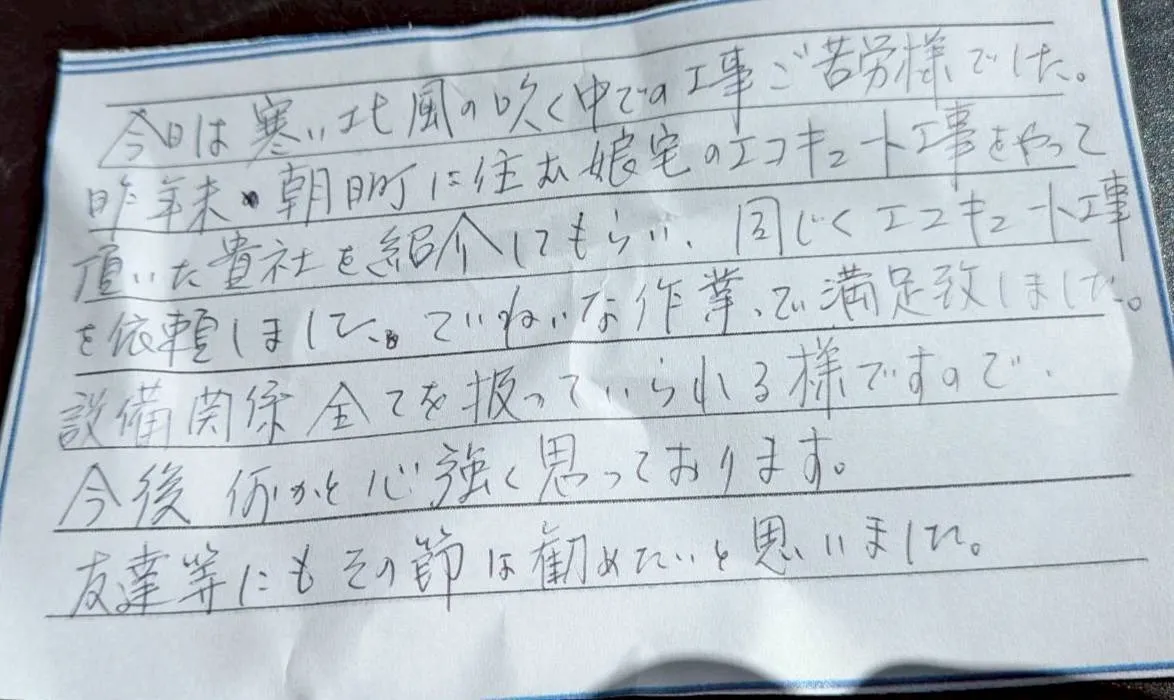 今日は寒い北風の吹く中での工事ご苦労様でした。
昨年末・朝日町に住む娘宅のエコキュート工事をやって
頂いた貴社を紹介してもらい、同じくエコキュート工事
を依頼しました。ていねいな作業で満足致しました。
設備関係全てを扱っていられる様ですので、
今後何かと心強く思っております。
友達等にもその節は勧めたいと思いました。